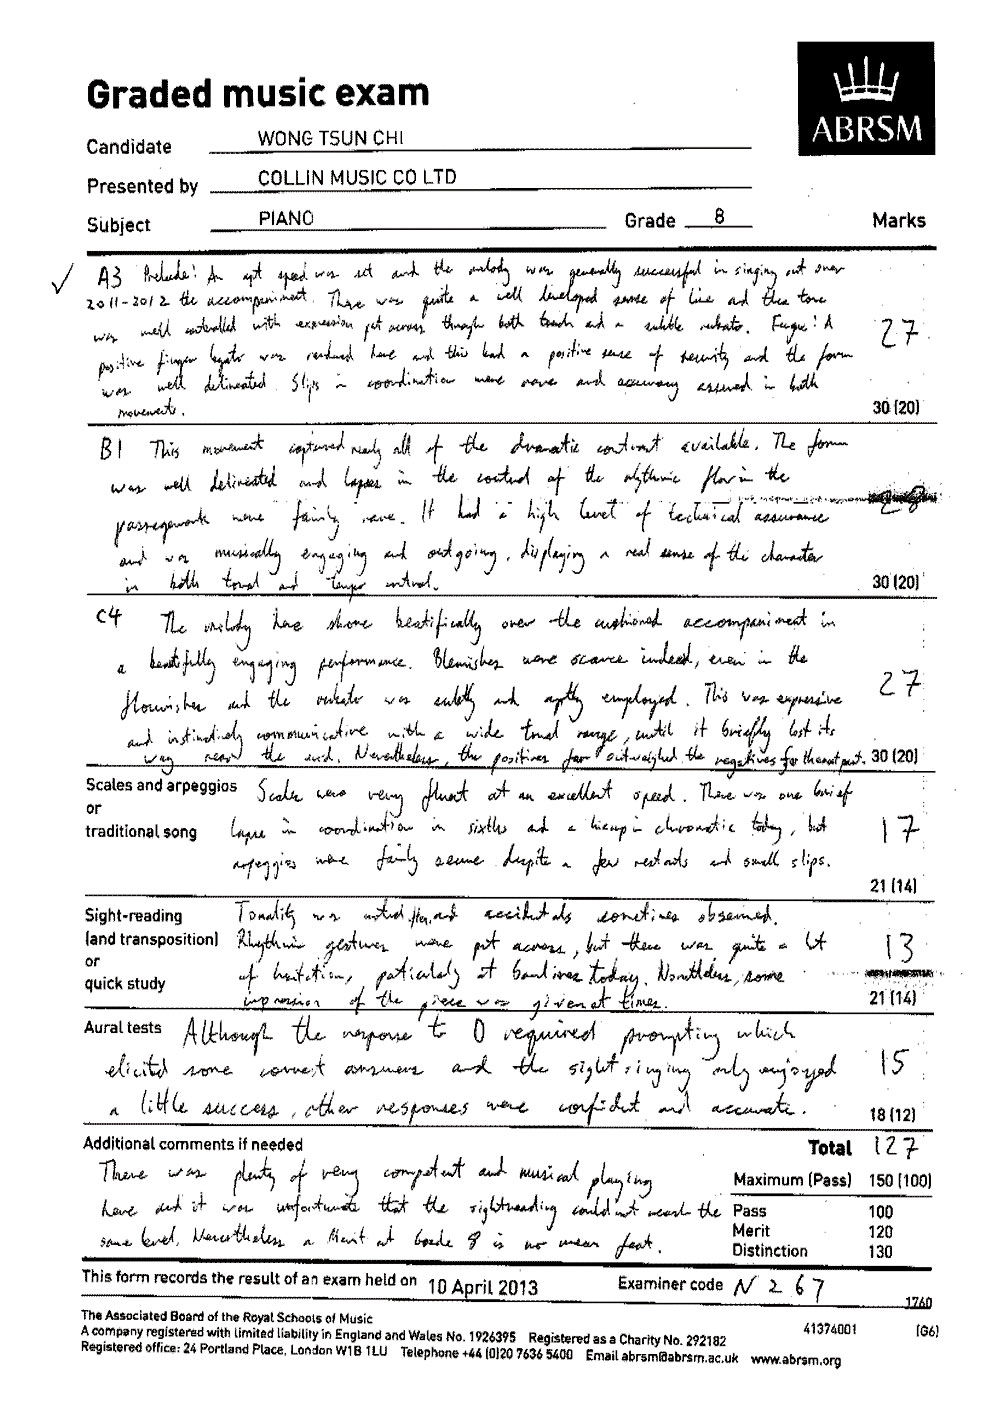 Graded music exam
ABRSM
Candidate WONG TSUN CHI
Presented by COLLIN MUSIC CO LTD
Subject PIANO Grade 8 Marks
✓ A3 Prelude: An apt speed was set and the melody was generally successful in singing out over
2011-2012 the accompaniment. There was quite a well developed sense of line and the tone
was well controlled with expression put across through both touch and a subtle rubato. Fugue: A
27
positive finger legato was rendered here and this lead a positive sense of security and the form
was well delineated. Slips in coordination were rare and accuracy assured in both
movements.
30 (20)
B1 This movement captured nearly all of the dramatic contrast available. The form
was well delineated and lapses in the control of the rhythmic flow in the
28
passagework were fairly rare. It had a high level of technical assurance
and was musically engaging and outgoing, displaying a real sense of the character
in both tonal and tempo control.
30 (20)
C4 The melody here shone beatifically over the cushioned accompaniment in
a beautifully engaging performance. Blemishes were scarce indeed, even in the
27
flourishes and the rubato was subtly and aptly employed. This was expressive
and instinctively communicative with a wide tonal range, until it briefly lost its
way near the end. Nevertheless, the positives far outweighed the negatives for the most part. 30 (20)
Scales and arpeggios Scales were very fluent at an excellent speed. There was one brief
or
traditional song lapse in coordination in sixths and a hiccup in chromatic today, but
17
arpeggios were fairly secure despite a few restarts and small slips.
21 (14)
Sight-reading Tonality was and accidentals sometimes observed.
(and transposition) Rhythmic gestures were put across, but there was quite a lot
13
or
quick study of hesitation, particularly at barlines today. Nonetheless, some
impression of the piece was given at times.
21 (14)
Aural tests Although the response to D required prompting which
elicited some correct answers and the sight singing only enjoyed
15
a little success, other responses were confident and accurate.
18 (12)
Additional comments if needed Total 127
There was plenty of very competent and musical playing
Maximum (Pass) 150 (100)
here and it was unfortunate that the sightreading could not reach the
Pass 100
Merit 120
same level. Nevertheless a Merit at Grade 8 is no mean feat.
Distinction 130
This form records the result of an exam held on 10 April 2013 Examiner code N 267
1760
The Associated Board of the Royal Schools of Music
A company registered with limited liability in England and Wales No. 1926395 Registered as a Charity No. 292182
41374001 (G6)
Registered office: 24 Portland Place, London W1B 1LU Telephone +44 (0)20 7636 5400 Email abrsm@abrsm.ac.uk www.abrsm.org